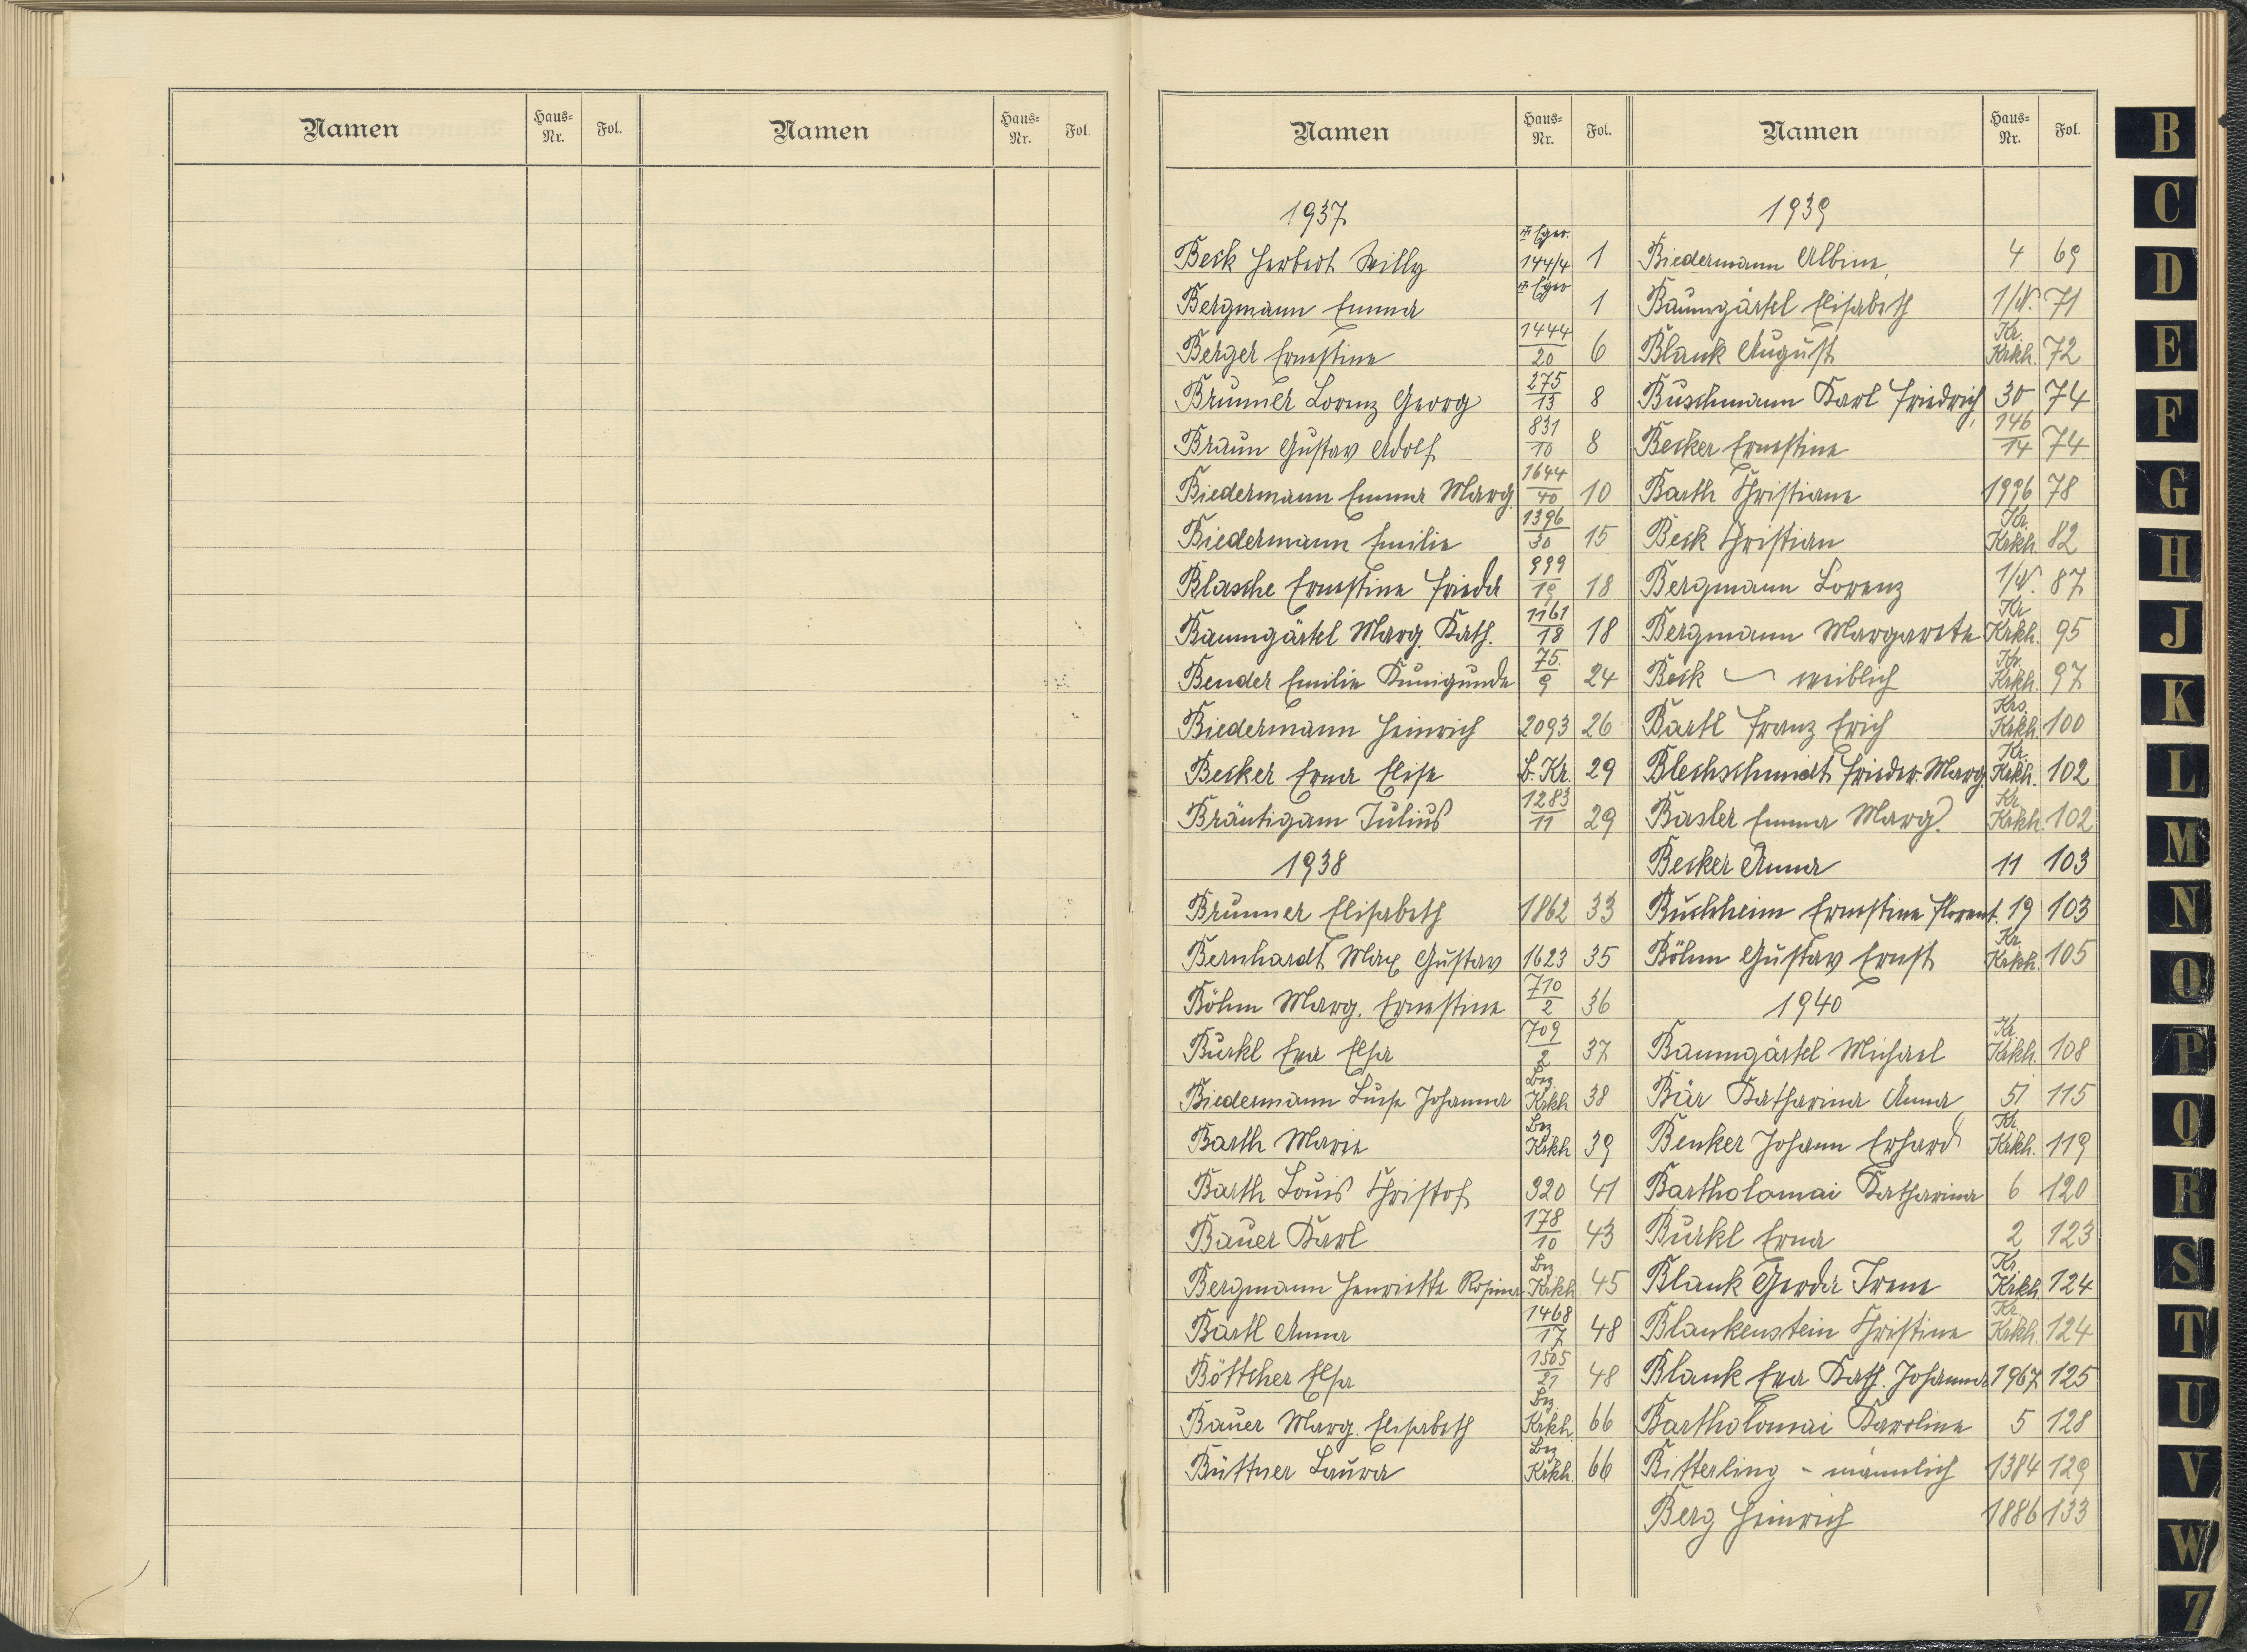 Namen Haus-Nr. Fol. Namen Haus-Nr. Fol.
Namen Haus-Nr. Fol. Namen Haus-Nr. Fol.
1937
Eger.
Beck Herbert Willy 144/4 1
Eger
Bergmann Emma 1
Berger Ernestine 1444/20 6
Brunner Lorenz Georg 275/13 8
Braun Gustav Adolf 831/10 8
Biedermann Emma Marg. 1644/40 10
Biedermann Emilie 1396/30 15
Blasche Ernestine Frieda 999/19 18
Baumgärtel Marg. Kath. 1161/18 18
Bender Emilie Kunigunde 75./9 24
Biedermann Heinrich 2093 26
Becker Erna Elise b. Kr. 29
Bräutigam Julius 1283/11 29
1938
Brunner Elisabeth 1862 33
Bernhardt Max Gustav 1623 35
Böhm Marg. Ernestine 710/2 36
Burkl Eva Elsa 709/2 37
Biedermann Luise Johanna Bez. Krkh 38
Barth Marie Bez Krkh 39
Barth Louis Christof 920 41
Bauer Karl 178/10 43
Bergmann Henriette Rosina Bez Krkh 45
Bartl Anna 1468/17 48
Böttcher Elsa 1505/21 48
Bauer Marg. Elisabeth Bez. Krkh. 66
Büttner Laura Bez Krkh. 66
1939
Biedermann Albine 4 69
Baumgärtel Elisabeth 1/N. 71
Blank August Kr. Krkh. 72
Buschmann Karl Friedrich 30 74
Becker Ernestine 146/14 74
Barth Christiane 1996 78
Beck Christian Kr. Krkh. 82
Bergmann Lorenz 1/N. 87
Bergmann Margarete Kr Krkh. 95
Beck weiblich Kr. Krkh. 97
Bartl Franz Erich Krs. Krkh. 100
Blechschmidt Frieder. Marg. Kr. Krkh. 102
Basler Emma Marg. Kr. Krkh. 102
Becker Anna 11 103
Buchheim Ernestine Florent. 19 103
Böhm Gustav Ernst Kr. Krkh. 105
1940
Baumgärtel Michael Kr. Krkh. 108
Bär Katharina Anna 51 115
Benker Johann Erhard Kr. Krkh. 119
Bartholomai Katharina 6 120
Burkl Erna 2 123
Blank Gerda Irene Kr. Krkh. 124
Blankenstein Christine Kr. Krkh. 124
Blank Eva Kath. Johanna 1967 125
Bartholomai Karoline 5 128
Bitterling - männlich 1384 129
Berg Heinrich 1886 133
B
C
D
E
F
G
H
J
K
L
M
N
O
P
Q
R
S
T
U
V
W
Z